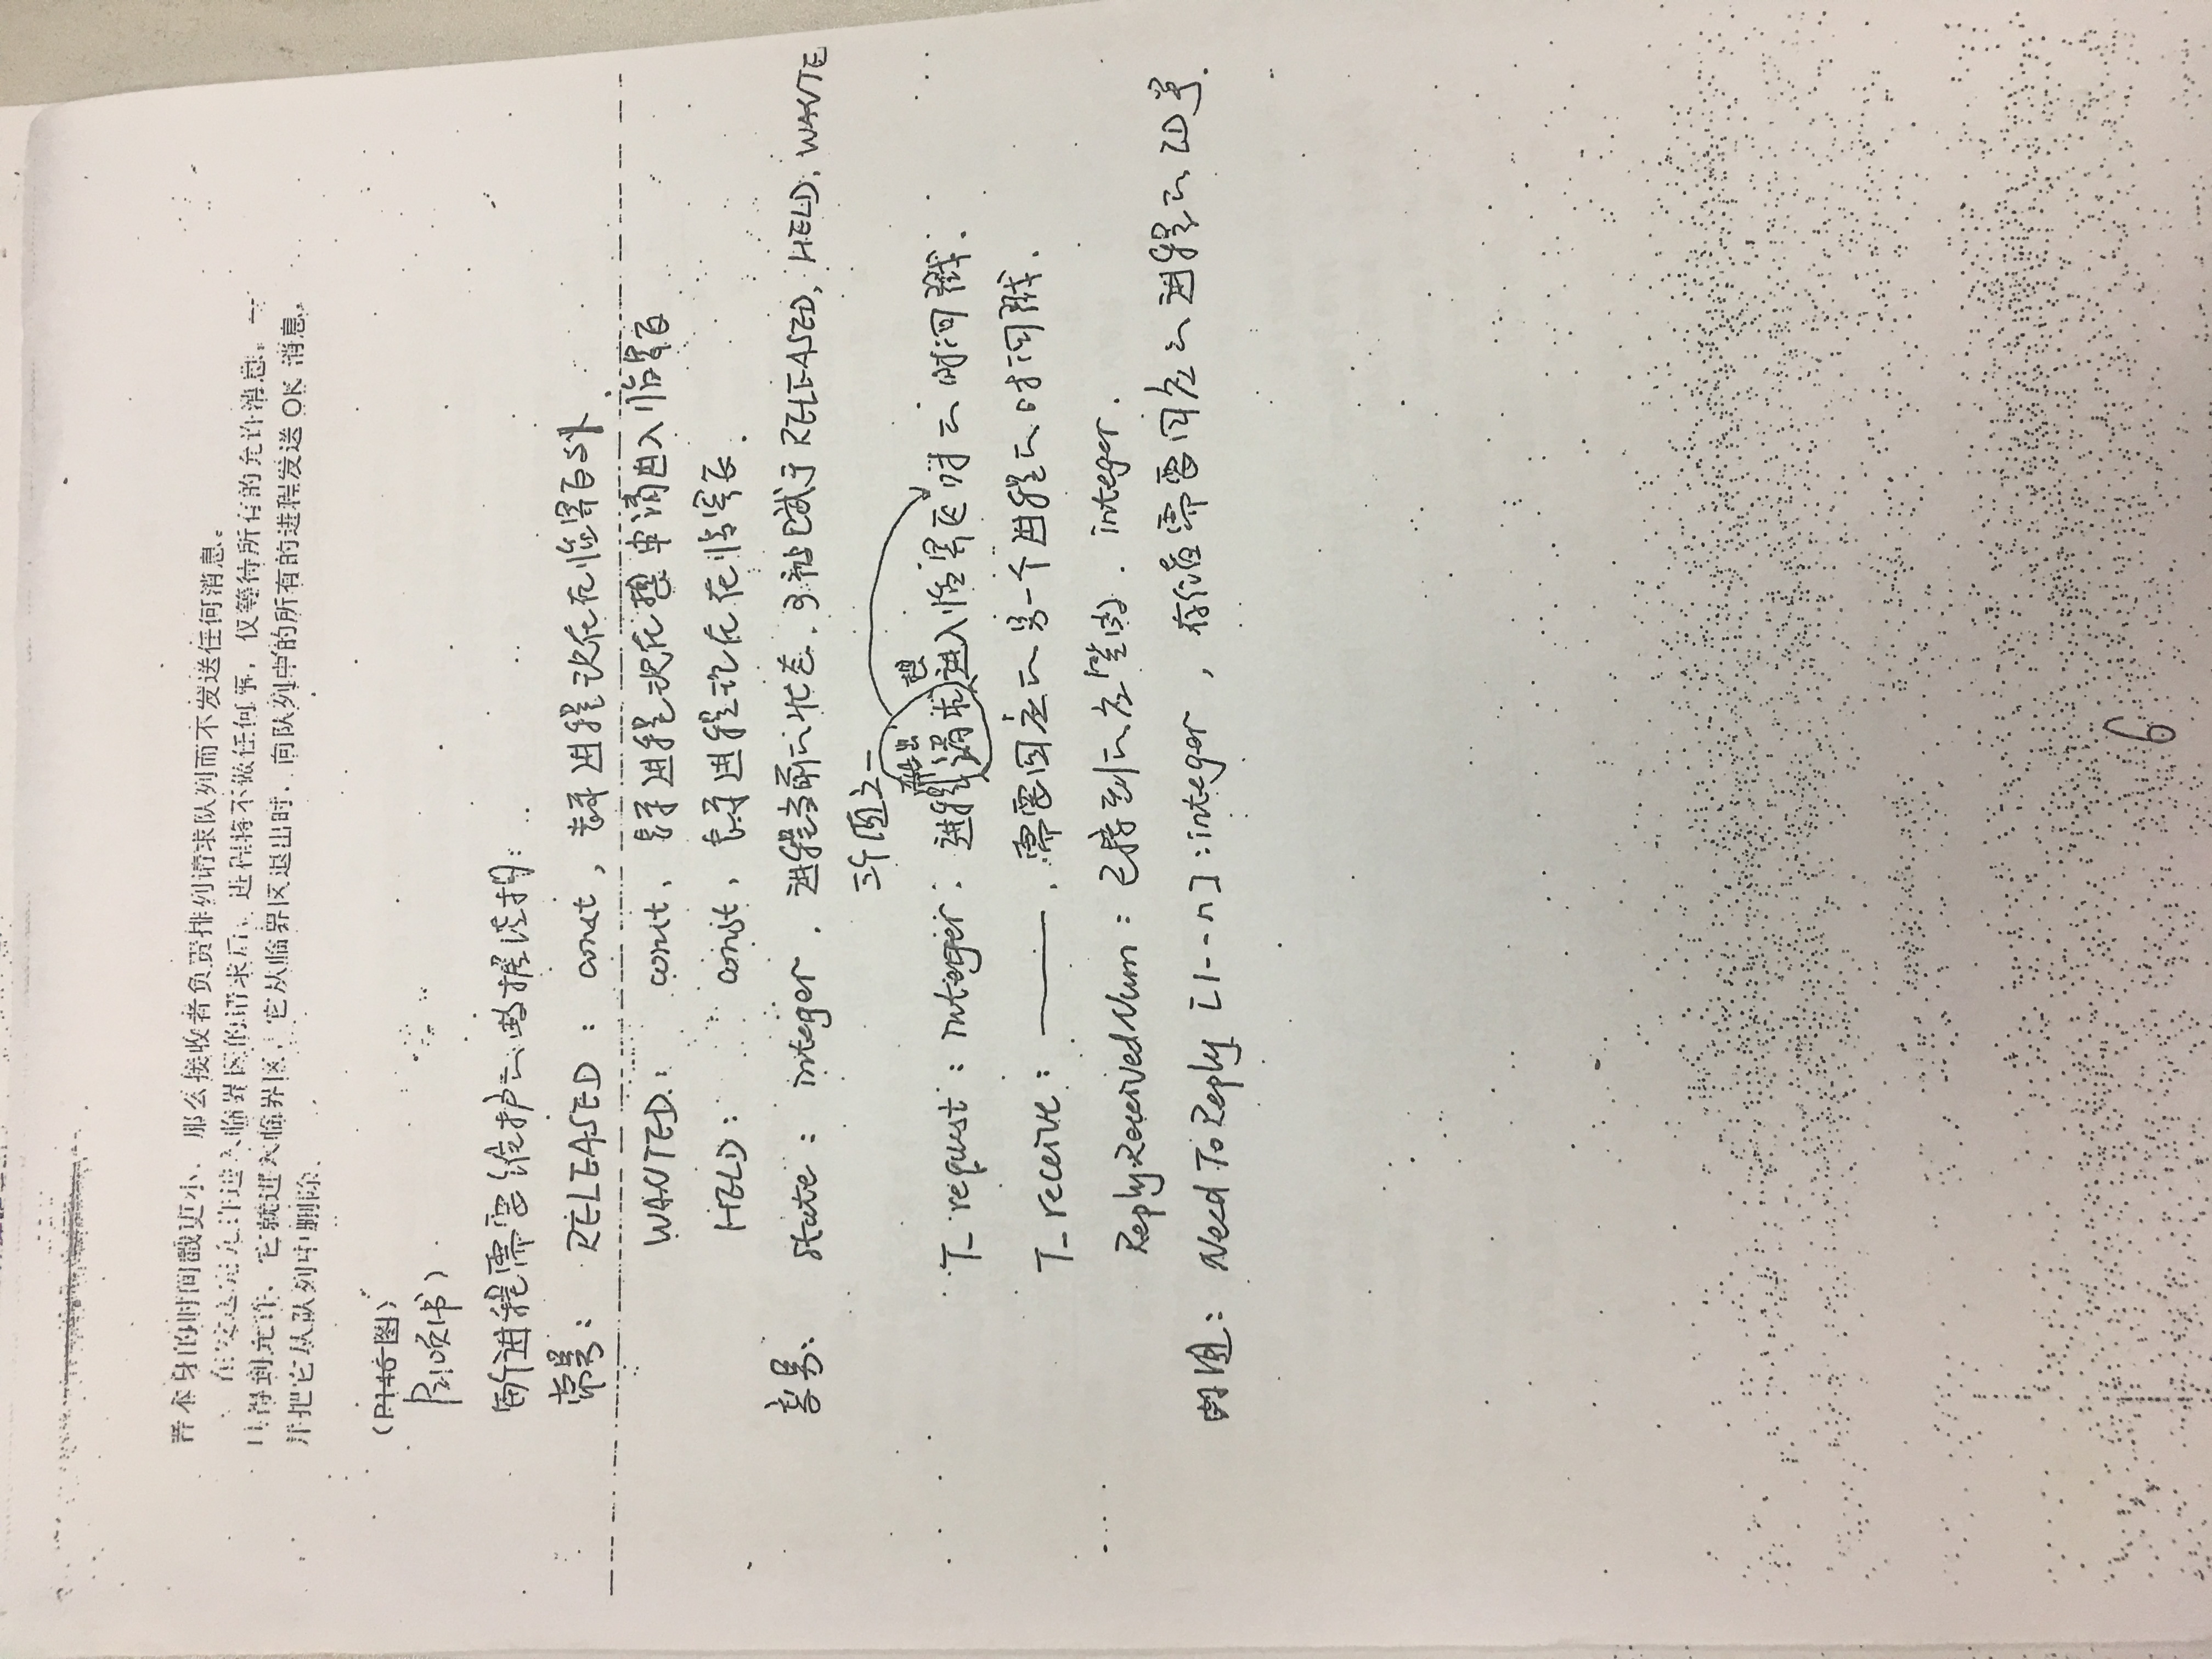 者本身的时间戳更小，那么接收者负责排列请求队列而不发送任何消息。
在发送完允许进入临界区的请求后，进程将不做任何事，仅等待所有的允许消息。一
旦得到允许，它就进入临界区，它从临界区退出时，向队列中的所有的进程发送 OK 消息，
并把它从队列中删除。
（P146 图）
P210页(书)
进程需要维护的数据结构：
常量： RELEASED : const, 表示进程现在在临界区外.
WANTED : const, 表示进程现在想申请进入临界区
HELD : const, 表示进程现在在临界区.
变量： state : integer. 进程当前的状态. 可被赋于 RELEASED, HELD, WANTE
三个值之一
发出 想
T_request : integer : 进程请求进入临界区时的时间戳.
T_receive : ——— . 需要回应的另一个进程的时间戳.
ReplyReceivedNum : 已接到的应答数. integer.
数组： NeedToReply [1--n] : integer , 存储着需要回应的进程的ID号.
6